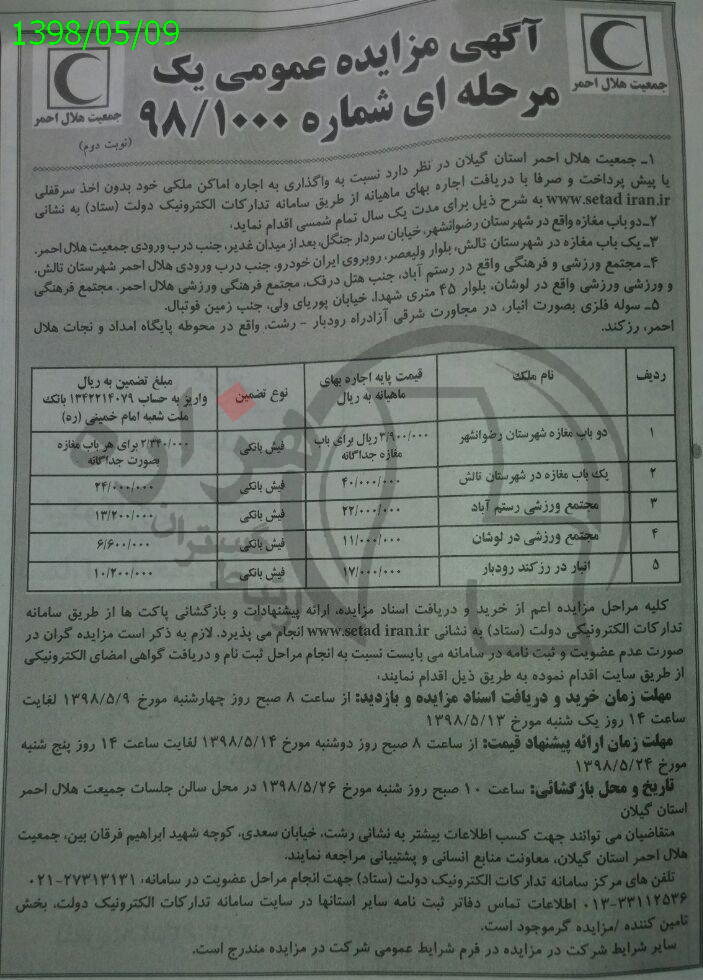 1398/05/09
آگهی مزایده عمومی یک
مرحله ای شماره ۹۸/۱۰۰۰
(نوبت دوم)
جمعیت هلال احمر
جمعیت هلال احمر
۱ـ جمعیت هلال احمر استان گیلان در نظر دارد نسبت به واگذاری به اجاره اماکن ملکی خود بدون اخذ سرقفلی
یا پیش پرداخت و صرفا با دریافت اجاره بهای ماهیانه از طریق سامانه تدارکات الکترونیک دولت (ستاد) به نشانی
www.setad iran.ir به شرح ذیل برای مدت یک سال تمام شمسی اقدام نماید.
۲ـ دو باب مغازه واقع در شهرستان رضوانشهر، خیابان سردار جنگل، بعد از میدان غدیر، جنب درب ورودی جمعیت هلال احمر.
۳ـ یک باب مغازه در شهرستان تالش، بلوار ولیعصر، روبروی ایران خودرو، جنب درب ورودی هلال احمر شهرستان تالش.
۴ـ مجتمع ورزشی و فرهنگی واقع در رستم آباد، جنب هتل درفک، مجتمع فرهنگی ورزشی هلال احمر. مجتمع فرهنگی
و ورزشی ورزشی واقع در لوشان، بلوار ۴۵ متری شهدا، خیابان پوریای ولی، جنب زمین فوتبال.
۵ـ سوله فلزی بصورت انبار، در مجاورت شرقی آزادراه رودبار - رشت، واقع در محوطه پایگاه امداد و نجات هلال
احمر، رزکند.
ردیف نام ملک قیمت پایه اجاره بهای ماهیانه به ریال نوع تضمین مبلغ تضمین به ریال واریز به حساب ۱۳۴۲۲۱۴۰۷۹ بانک ملت شعبه امام خمینی (ره)
۱ دو باب مغازه شهرستان رضوانشهر ۳/۹۰۰/۰۰۰ ریال برای باب مغازه جداگانه فیش بانکی ۲/۳۴۰/۰۰۰ برای هر باب مغازه بصورت جداگانه
۲ یک باب مغازه در شهرستان تالش ۴۰/۰۰۰/۰۰۰ فیش بانکی ۲۴/۰۰۰/۰۰۰
۳ مجتمع ورزشی رستم آباد ۲۲/۰۰۰/۰۰۰ فیش بانکی ۱۳/۲۰۰/۰۰۰
۴ مجتمع ورزشی در لوشان ۱۱/۰۰۰/۰۰۰ فیش بانکی ۶/۶۰۰/۰۰۰
۵ انبار در رزکند رودبار ۱۷/۰۰۰/۰۰۰ فیش بانکی ۱۰/۲۰۰/۰۰۰
کلیه مراحل مزایده اعم از خرید و دریافت اسناد مزایده، ارائه پیشنهادات و بازگشائی پاکت ها از طریق سامانه
تدارکات الکترونیکی دولت (ستاد) به نشانی www.setad iran.ir انجام می پذیرد. لازم به ذکر است مزایده گران در
صورت عدم عضویت و ثبت نامه در سامانه می بایست نسبت به انجام مراحل ثبت نام و دریافت گواهی امضای الکترونیکی
از طریق سایت اقدام نموده به طریق ذیل اقدام نمایند.
مهلت زمان خرید و دریافت اسناد مزایده و بازدید: از ساعت ۸ صبح روز چهارشنبه مورخ ۱۳۹۸/۵/۹ لغایت
ساعت ۱۴ روز یک شنبه مورخ ۱۳۹۸/۵/۱۳
مهلت زمان ارائه پیشنهاد قیمت: از ساعت ۸ صبح روز دوشنبه مورخ ۱۳۹۸/۵/۱۴ لغایت ساعت ۱۴ روز پنج شنبه
مورخ ۱۳۹۸/۵/۲۴
تاریخ و محل بازگشائی: ساعت ۱۰ صبح روز شنبه مورخ ۱۳۹۸/۵/۲۶ در محل سالن جلسات جمیعت هلال احمر
استان گیلان
متقاضیان می توانند جهت کسب اطلاعات بیشتر به نشانی رشت، خیابان سعدی، کوچه شهید ابراهیم فرقان بین، جمعیت
هلال احمر استان گیلان، معاونت منابع انسانی و پشتیبانی مراجعه نمایند.
تلفن های مرکز سامانه تدارکات الکترونیک دولت (ستاد) جهت انجام مراحل عضویت در سامانه، ۲۷۳۱۳۱۳۱-۰۲۱
۳۳۱۱۲۵۳۶-۰۱۳ اطلاعات تماس دفاتر ثبت نامه سایر استانها در سایت سامانه تدارکات الکترونیک دولت، بخش
تامین کننده /مزایده گرموجود است.
سایر شرایط شرکت در مزایده در فرم شرایط عمومی شرکت در مزایده مندرج است.